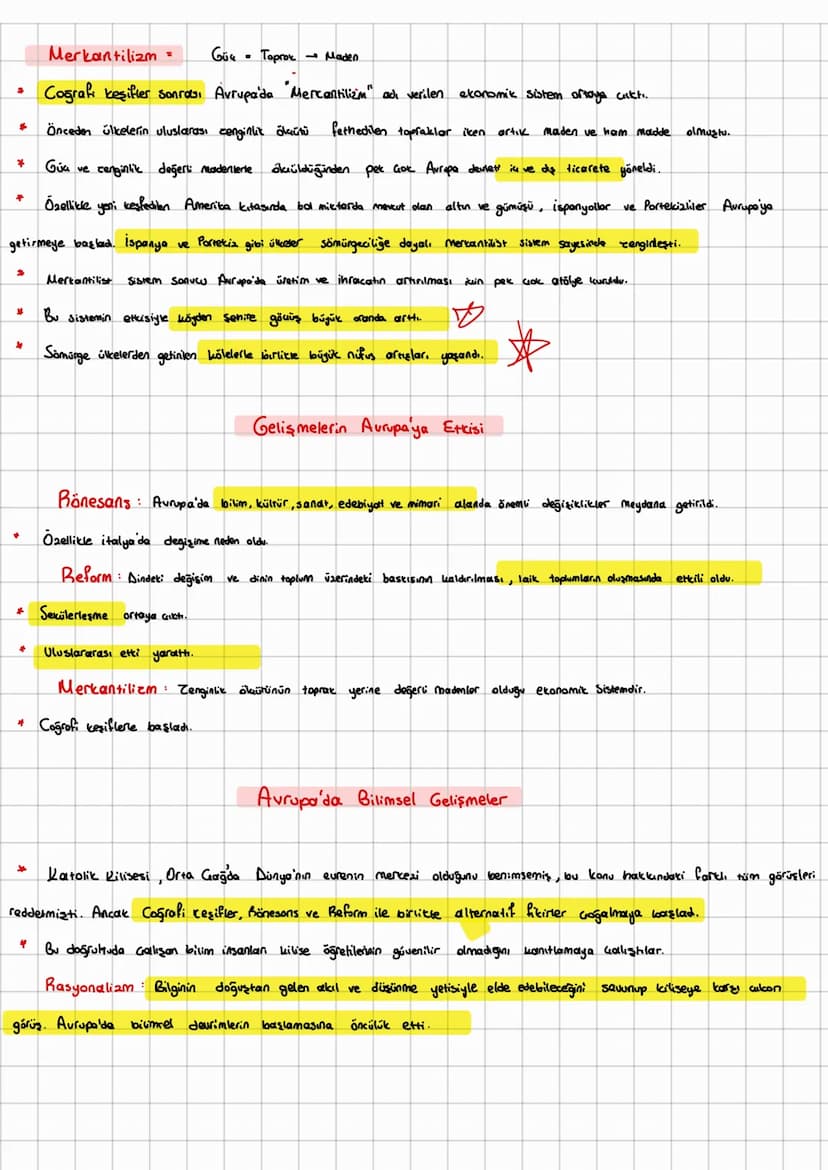 Merkantilizm = Güç = Toprak → Maden
* Coğrafi keşifler sonrası Avrupa'da "Mercantilizm" adı verilen ekonomik sistem ortaya çıktı.
* Önceden ülkelerin uluslararası zenginlik ölçütü fethedilen topraklar iken artık maden ve ham madde olmuştu.
* Güç ve zenginlik değerli madenlerle ölçüldüğünden pek çok Avrupa devleti iç ve dış ticarete yöneldi.
* Özellikle yeni keşfedilen Amerika kıtasında bol miktarda mevcut olan altın ve gümüşü, ispanyollar ve Portekizliler Avrupa'ya
getirmeye başladı. İspanya ve Portekiz gibi ülkeler sömürgeciliğe dayalı merkantilist sistem sayesinde zenginleşti.
* Merkantilist sistem sonucu Avrupa'da üretim ve ihracatın artırılması için pek çok atölye kuruldu.
* Bu sistemin etkisiyle köyden şehire göçüş büyük oranda arttı.
* Sömürge ülkelerden getirilen kölelerle birlikte büyük nüfus artışları yaşandı.
Gelişmelerin Avrupa'ya Etkisi
Rönesans : Avrupa'da bilim, kültür, sanat, edebiyat ve mimari alanda önemli değişiklikler meydana getirildi.
* Özellikle italya'da degişime neden oldu.
Reform : Dindeki değişim ve dinin toplum üzerindeki baskısının kaldırılması, laik toplumların oluşmasında etkili oldu.
* Sekülerleşme ortaya çıktı.
* Uluslararası etki yarattı.
Merkantilizm : Zenginlik ölçütünün toprak yerine değerli madenler olduğu ekonomik sistemdir.
* Coğrafi keşiflerle başladı.
Avrupa'da Bilimsel Gelişmeler
* Katolik Kilisesi, Orta Çağ'da Dünya'nın evrenin merkezi olduğunu benimsemiş, bu konu hakkındaki farklı tüm görüşleri
reddetmişti. Ancak Coğrafi keşifler, Rönesans ve Reform ile birlikte alternatif fikirler çoğalmaya başladı.
* Bu doğrultuda çalışan bilim insanları kilise öğretilerinin güvenilir olmadığını kanıtlamaya çalıştılar.
Rasyonalizm : Bilginin doğuştan gelen akıl ve düşünme yetisiyle elde edebileceğini savunup kiliseye karşı çıkan
görüş. Avrupa'da bilimsel devrimlerin başlamasına öncülük etti.